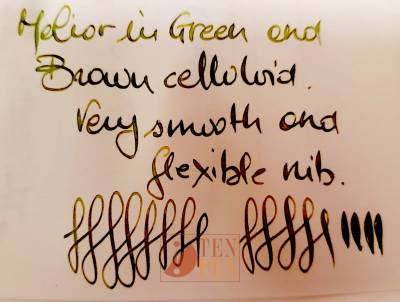 Melior in Green and
Brown celluloid.
Very smooth and
flexible nib.
TEN